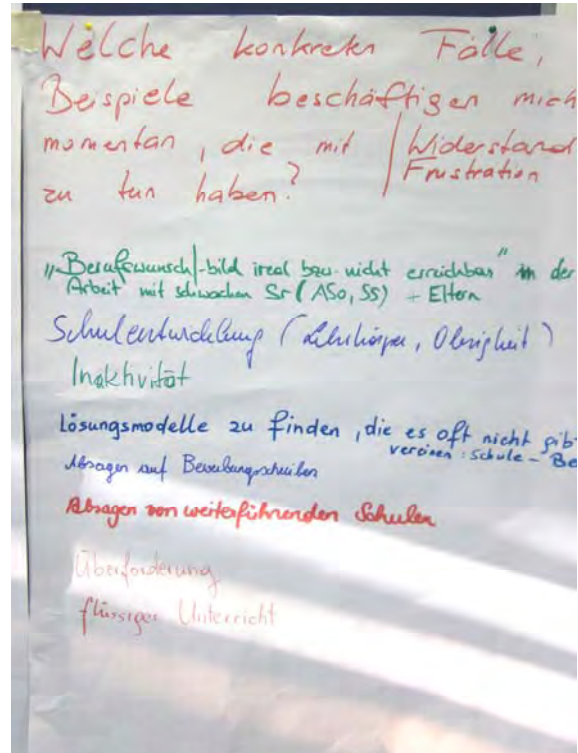 Welche konkreten Fälle,
Beispiele beschäftigen mich
momentan, die mit / Widerstand
zu tun haben? Frustration
"Berufswunsch/-bild ireal bzw. nicht erreichbar" in der
Arbeit mit schwachen Sr (ASO, SS) + Eltern
Schulentwicklung (Lehrkörper, Obrigkeit)
Inaktivität
Lösungsmodelle zu finden, die es oft nicht gib
vereinen: Schule - Be
Absagen auf Bewerbungsschreiben
Absagen von weiterführenden Schulen
Überforderung
flüssiger Unterricht